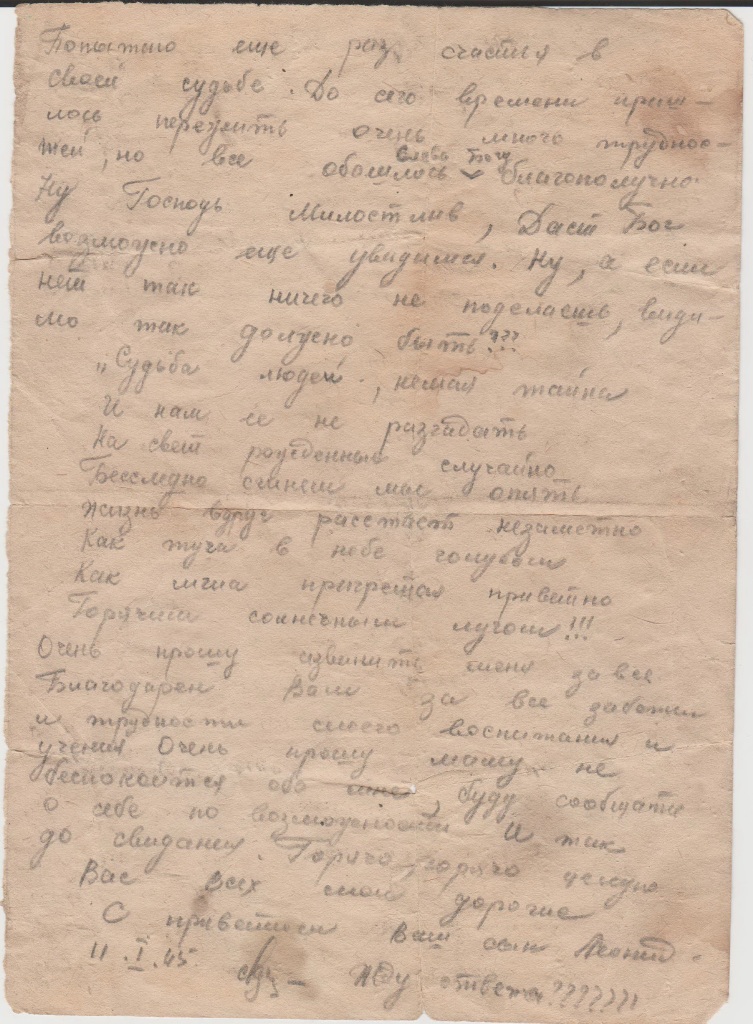 Попытаю еще раз счастья в
своей судьбе. До сего времени приш-
лось пережить очень много труднос-
тей, но все обошлось Слава Богу благополучно.
Ну Господь Милостлив, Даст Бог
возможно еще увидимся. Ну, а если
нет так ничего не поделаешь, види-
мо так должно быть!???
„Судьба людей, немая тайна
И нам ее не разгадать
На свет рожденные случайно
Бесследно сгинем мы опять
Жизнь вдруг растает незаметно
Как туча в небе голубом
Как мгла пригретая приветно
Горячим солнечным лучом!!!
Очень прошу извинить меня за все
Благодарен Вам за все заботы
и трудности моего воспитания и
учения Очень прошу маму не
беспокоится обо мне, буду сообщать
о себе по возможности И так
до свидания. Горячо, горячо целую
Вас всех мои дорогие
С приветом Ваш сын Леонид.
11.I.45 Жду ответа???????